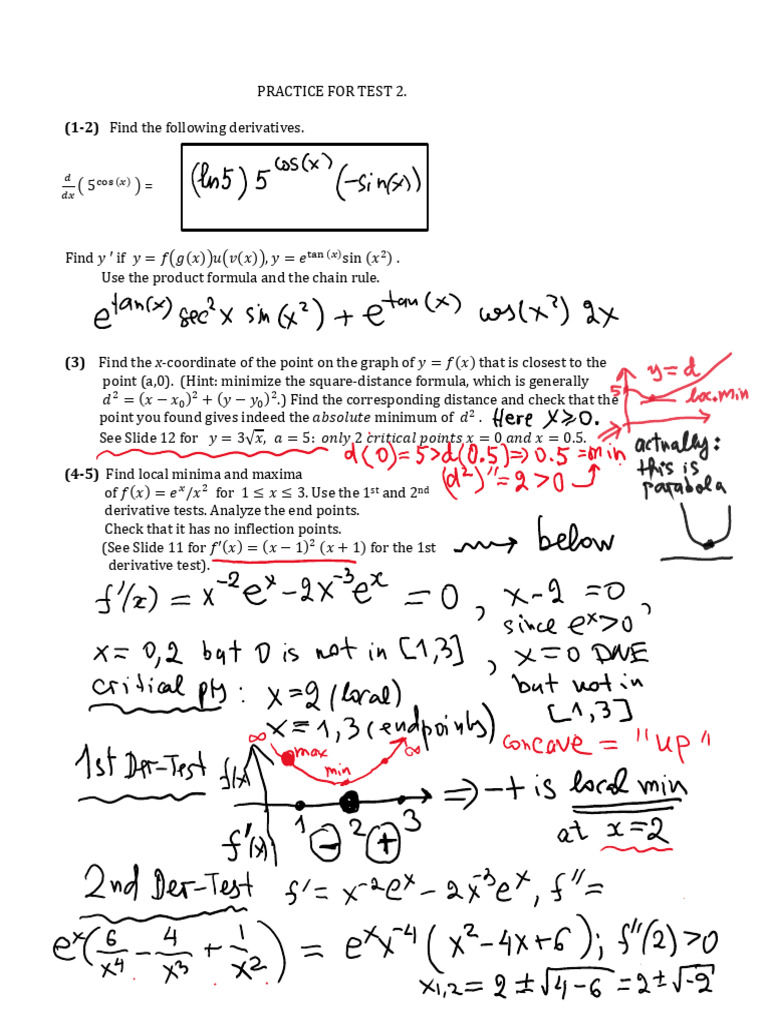 PRACTICE FOR TEST 2.
(1-2) Find the following derivatives.
d/dx ( 5^cos(x) ) = (ln5) 5^cos(x) (-sin(x))
Find y ′ if y = f(g(x))u(v(x)), y = e^tan (x) sin (x²) .
Use the product formula and the chain rule.
e^tan(x) sec²x sin(x²) + e^tan(x) cos(x²) 2x
(3) Find the x-coordinate of the point on the graph of y = f(x) that is closest to the
point (a,0). (Hint: minimize the square-distance formula, which is generally
d² = (x − x₀)² + (y − y₀)².) Find the corresponding distance and check that the
point you found gives indeed the absolute minimum of d² . Here x⩾0.
See Slide 12 for y = 3√x, a = 5: only 2 critical points x = 0 and x = 0.5.
y=d
5
loc.min
d(0)=5>d(0.5)=>0.5=min
(d²)″=2>0
actually:
this is
parabola
(4-5) Find local minima and maxima
of f(x) = eˣ/x² for 1 ≤ x ≤ 3. Use the 1st and 2nd
derivative tests. Analyze the end points.
Check that it has no inflection points.
(See Slide 11 for f′(x) = (x − 1)² (x + 1) for the 1st
derivative test).
below
f'(x) = x⁻²eˣ − 2x⁻³eˣ = 0 , x-2 =0
since eˣ>0 ,
x= 0,2 but 0 is not in [1,3] , x=0 DNE
but not in
[1,3]
critical pts : x=2 (local)
x=1,3 (endpoints)
concave = "up"
1st Der-Test
f(x)
∞
max
min
∞
=> -+ is local min
at x=2
f'(x)
1 − 2 + 3
2nd Der-Test f'= x⁻²eˣ − 2x⁻³eˣ, f"=
eˣ(6/x⁴ − 4/x³ + 1/x²) = eˣx⁻⁴ (x²−4x+6); f"(2)>0
x₁,₂ = 2 ± √4−6 = 2± √-2